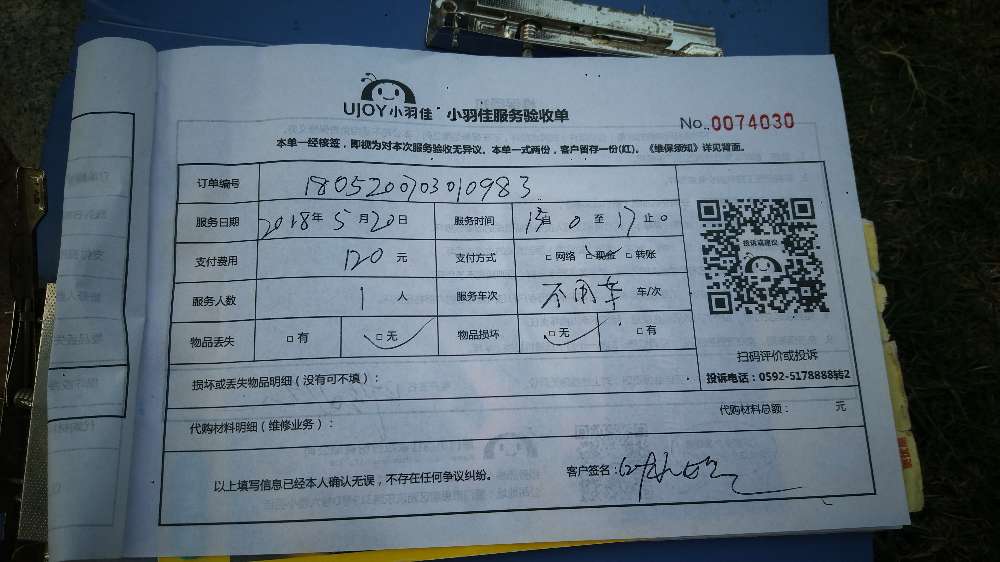 UJOY小羽佳 小羽佳服务验收单
No. 0074030
本单一经核签，即视为对本次服务验收无异议。本单一式两份，客户留存一份(红)。《维保须知》详见背面。
订单编号 1805200703010983
服务日期 2018年5月20日 服务时间 13自0至17止0
支付费用 120元 支付方式 □网络 □现金 □转账
服务人数 1人 服务车次 不用车 车/次
物品丢失 □有 □无 物品损坏 □无 □有
投诉或建议
扫码评价或投诉
投诉电话：0592-5178888转2
损坏或丢失物品明细（没有可不填）：
代购材料明细（维修业务）： 代购材料总额： 元
以上填写信息已经本人确认无误，不存在任何争议纠纷。 客户签名：